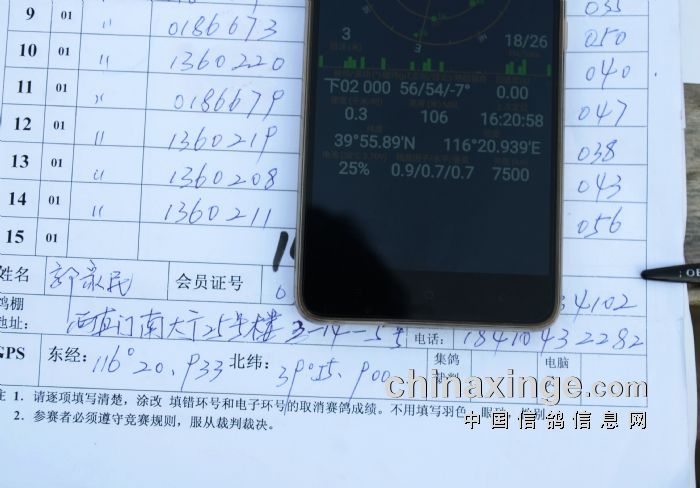 9 01 〃 0186673 035
10 01 〃 1360220 050
11 01 〃 0186679 040
12 01 〃 1360219 047
13 01 〃 1360208 038
14 01 〃 1360211 043
15 01 056
3 18/26
下02 000 56/54/-7° 0.00
0.3 106 16:20:58
39°55.89'N 116°20.939'E
25% 0.9/0.7/0.7 7500
姓名 会员证号 34102
鸽棚
地址: 南大 25号楼 3-14-5号 电话: 18410432282
GPS 东经: 116°20.933 北纬: 39°55.900 集鸽 电脑
注 1. 请逐项填写清楚,涂改 填错环号和电子环号的取消赛鸽成绩。不用填写羽色、眼砂、性别。
2. 参赛者必须遵守竞赛规则,服从裁判裁决。
chinaxinge.com
中国信鸽信息网